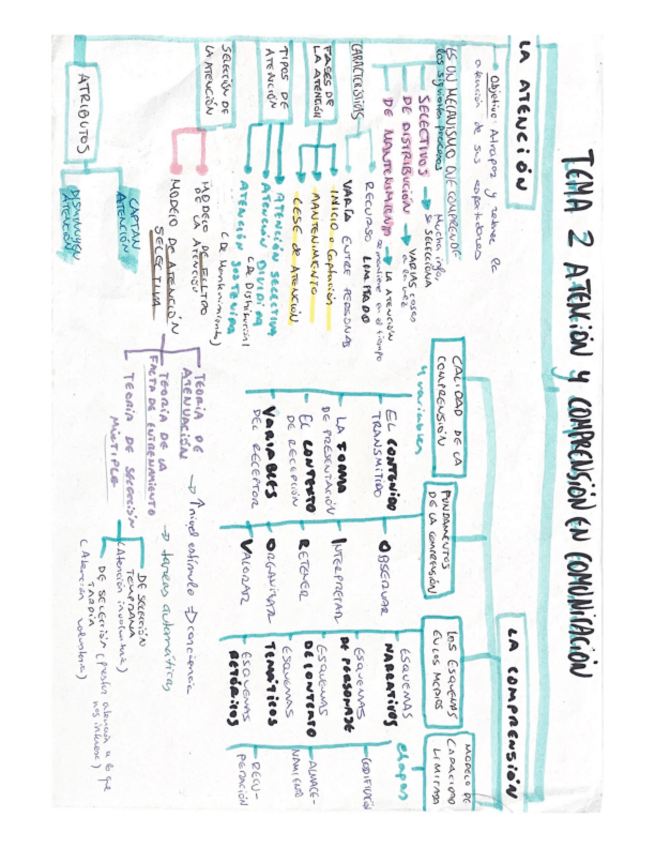 TEMA 2 ATENCIÓN Y COMPRENSIÓN EN COMUNICACIÓN
LA ATENCIÓN
Objetivo: Atrapar y retener la
atención de sus espectadores
ES UN MECANISMO QUE COMPRENDE
los siguientes procesos
SELECTIVOS → Mucha info,
se SELECCIONA
DE DISTRIBUCIÓN → VARIAS cosas
a la vez
DE MANTENIMIENTO → LA ATENCIÓN
se mantiene en el tiempo
CARACTERÍSTICAS
RECURSO LIMITADO
VARÍA ENTRE PERSONAS
FASES DE
LA ATENCIÓN
INICIO o Captación
MANTENIMIENTO
CESE de ATENCIÓN
TIPOS DE
ATENCIÓN
ATENCIÓN SELECTIVA
ATENCIÓN DIVIDIDA
(de Distribución)
ATENCIÓN SOSTENIDA
(de Mantenimiento)
SELECCIÓN DE
LA ATENCIÓN
MODELO DE FILTRO
DE LA ATENCIÓN
MODELO DE ATENCIÓN
SELECTIVA
TEORÍA DE
ATENUACIÓN
→ ↑ nivel estímulo → consciencia
TEORÍA DE LA
FALTA DE ENTRENAMIENTO
→ tareas automáticas
TEORÍA DE SELECCIÓN
MÚLTIPLE
DE SELECCIÓN
TEMPRANA
(Atención involuntaria)
DE SELECCIÓN (prestar atención a lo que
TARDÍA
nos interesa)
(Atención voluntaria)
ATRIBUTOS
CAPTAN
ATENCIÓN
DISMINUYEN
ATENCIÓN
LA COMPRENSIÓN
CALIDAD DE LA
COMPRENSIÓN
4 variables
EL CONTENIDO
TRANSMITIDO
LA FORMA
DE PRESENTACIÓN
EL CONTEXTO
DE RECEPCIÓN
VARIABLES
DEL RECEPTOR
FUNDAMENTOS
DE LA COMPRENSIÓN
OBSERVAR
INTERPRETAR
RETENER
ORGANIZAR
VALORAR
LOS ESQUEMAS
EN LOS MEDIOS
ESQUEMAS
NARRATIVOS
ESQUEMAS
DE PERSONAJE
ESQUEMAS
DE CONTEXTO
ESQUEMAS
TEMÁTICOS
ESQUEMAS
RETÓRICOS
MODELO DE
CAPACIDAD
LIMITADA
etapas
CODIFICACIÓN
ALMACE-
NAMIENTO
RECU-
PERACIÓN